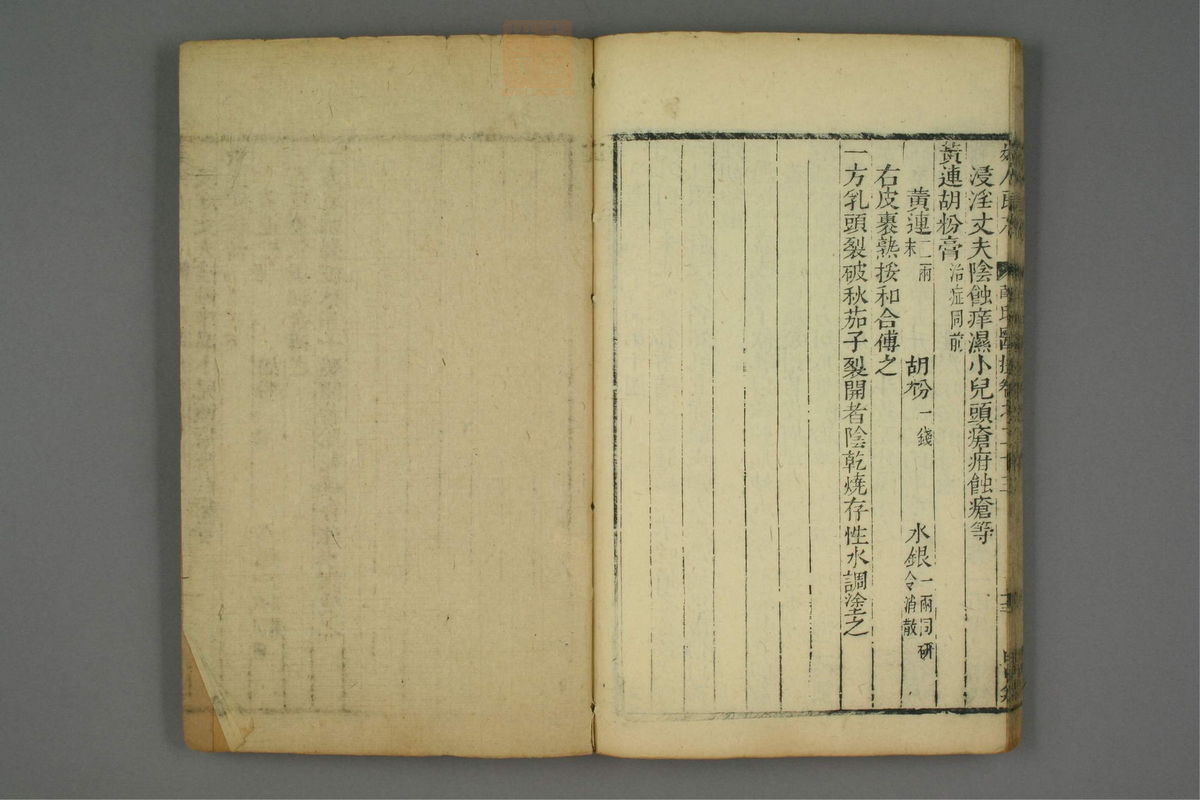 浸淫丈夫陰蝕痒濕小兒頭瘡疳蝕瘡等
黃連胡粉膏治症同前
黃連二兩末 胡粉一錢 水銀一兩同研令消散
右皮裹熟挼和合傅之
一方乳頭裂破秋茄子裂開者陰乾燒存性水調塗之